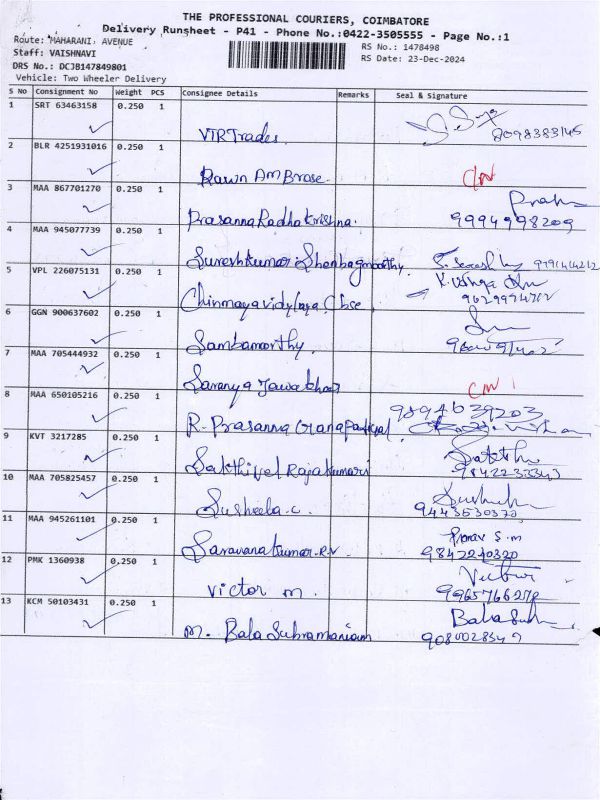 THE PROFESSIONAL COURIERS, COIMBATORE
Delivery Runsheet - P41 - Phone No.:0422-3505555 - Page No.:1
Route: MAHARANI AVENUE
RS No.: 1478498
Staff: VAISHNAVI
RS Date: 23-Dec-2024
DRS No.: DCJB147849801
Vehicle: Two Wheeler Delivery
S No Consignment No Weight PCS Consignee Details Remarks Seal & Signature
1 SRT 63463158 0.250 1
VTR Trades 8098383145
2 BLR 4251931016 0.250 1
Rawn Ambrose
3 MAA 867701270 0.250 1
Prasanna Radhakrishna. 9994998209
4 MAA 945077739 0.250 1
Sureshkumar Shanbagmoorthy
5 VPL 226075131 0.250 1
Chinmayavidyalaya Cbse
6 GGN 900637602 0.250 1
Sambamorthy
7 MAA 705444932 0.250 1
Saranya Jawakhar
8 MAA 650105216 0.250 1
R. Prasanna Ganapathy 9894639203
9 KVT 3217285 0.250 1
Sakthivel Rajakumari 9842233343
10 MAA 705825457 0.250 1
Susheela.c. 9443530370
11 MAA 945261101 0.250 1
Saravanakumar.R.V 9842240320
12 PMK 1360938 0.250 1
Victor m. 9965766278
13 KCM 50103431 0.250 1
m. Bala Subramaniam